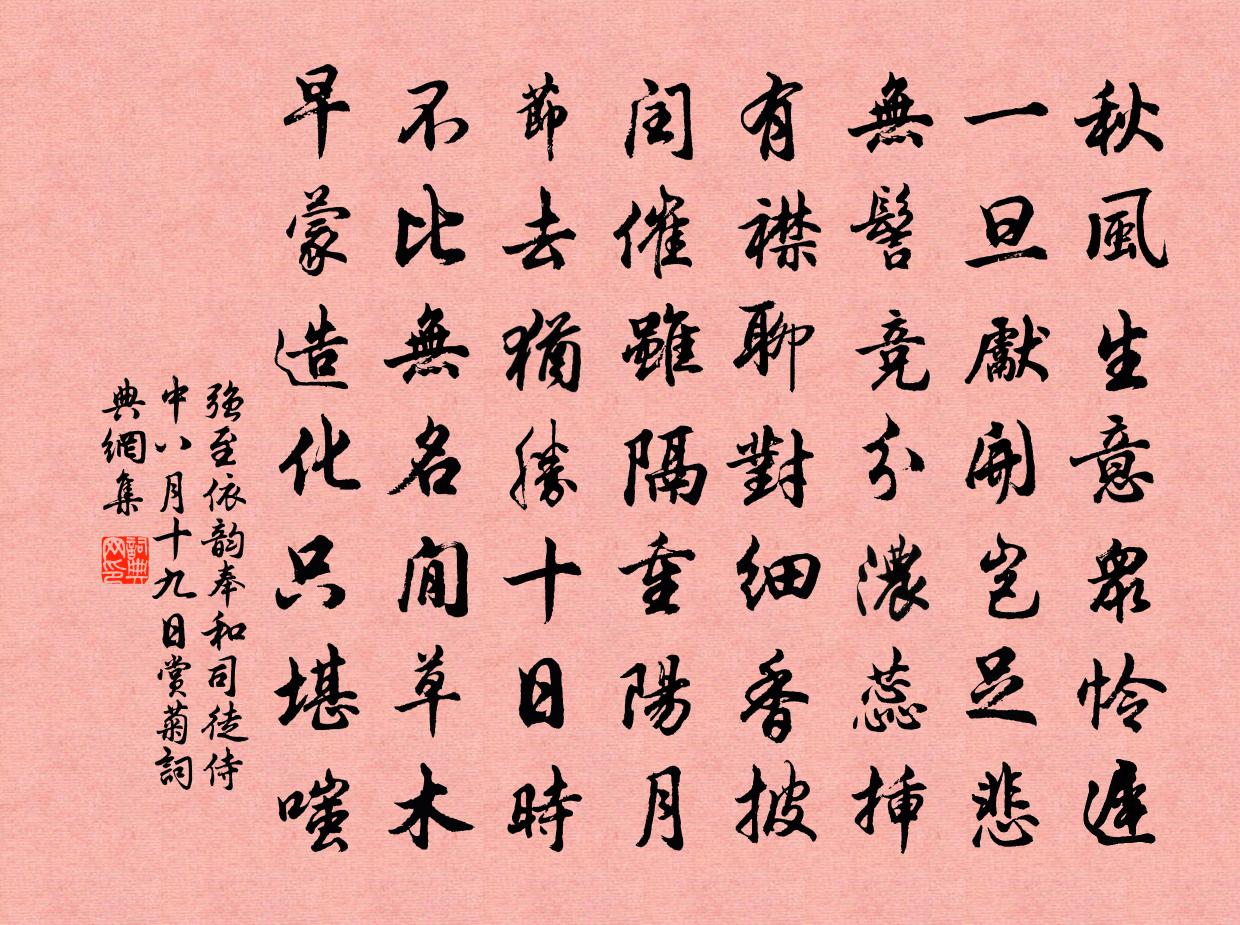 秋風生意眾怜遲
一旦獻開豈足悲
無髻竞分濃蕊挿
有襟聊對细香披
闰催雖隔重陽月
節去猶勝十日時
不比無名閒草木
早蒙造化只堪嗤
强至依韵奉和司徒侍
中八月十九日赏菊詞
典網集
詞典网印